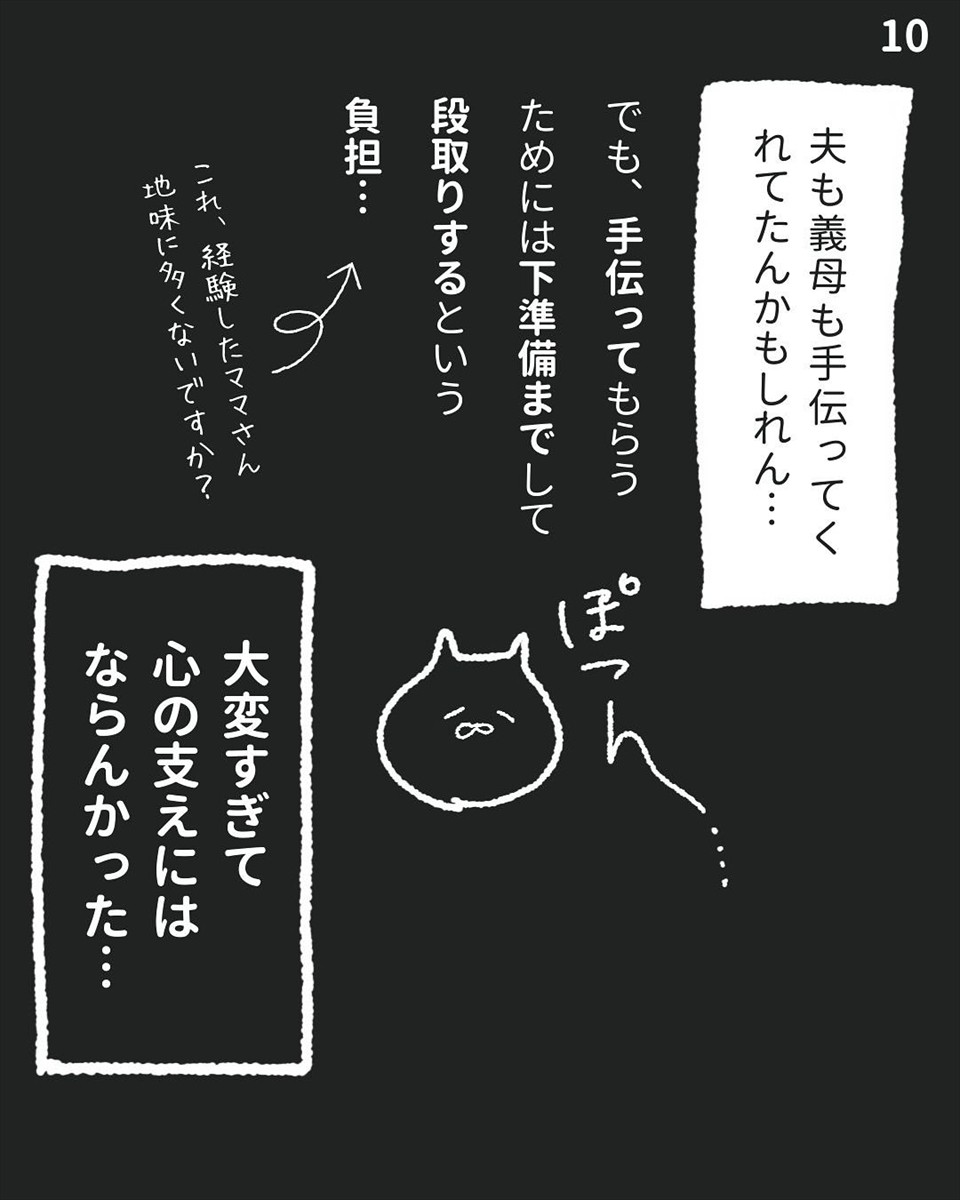 10
夫も義母も手伝ってく
れてたんかもしれん…
でも、手伝ってもらう
ためには下準備までして
段取りするという
負担…
これ、経験したママさん
地味に多くないですか?
ぽつん……
大変すぎて
心の支えには
ならんかった…